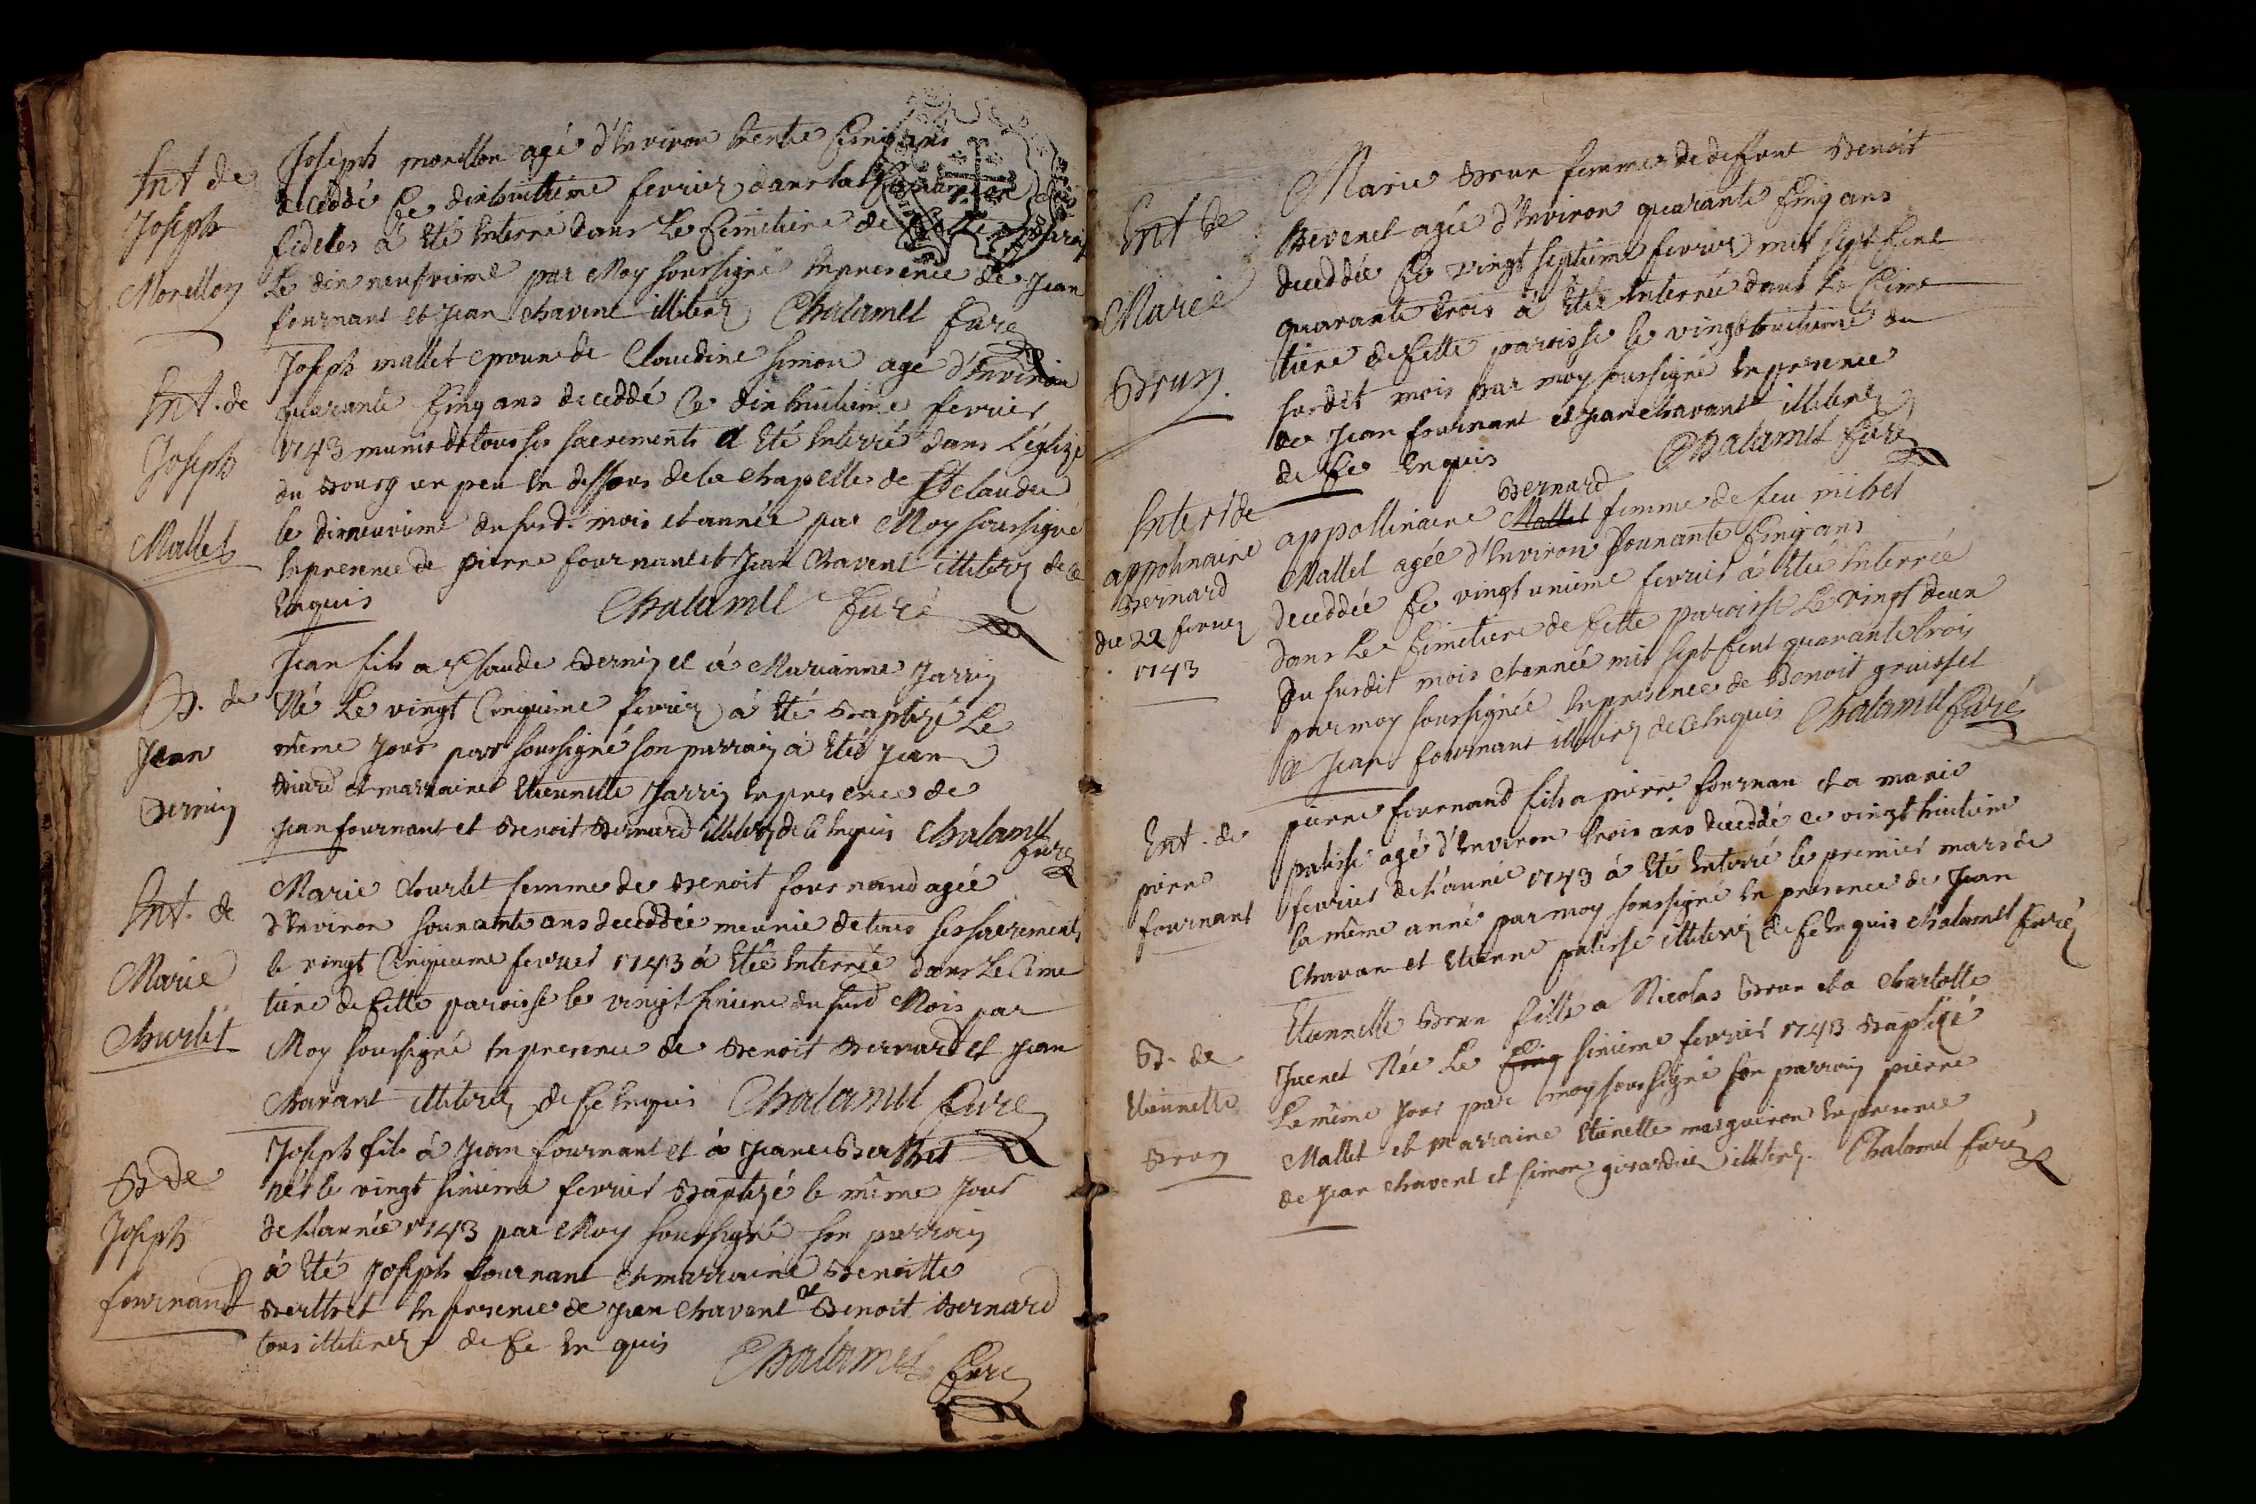 Int de
Joseph
Morellon
Joseph morellon agé d'Environ trente Cinq ans
decedé Ce dixhuittieme fevrier dans la
fideles à Eté Enterré dans Le Cimetiere de
Le dix neufvieme par Moy soussigné Enpresence de Jean
fournant et Jean chavent illiterés Chalamel Curé
Int. de
Joseph
Mallet
Joseph mallet epoux de Claudine simon agé d'Environ
quarante Cinq ans deceddé Ce dix huitieme fevrier
1743 munis de tous ses sacrements a Eté Enterré dans L'Eglize
du Bourg un peu En dessous de la chapelle de St Claude
le dixneuvieme du susd. mois et année par Moy soussigné
Enpresence de pierre fournant et Jean Chavent illiterés de ce
Enquis Chalamel Curé
B. de
Jean
Bernin
Jean fils a Claude Bernin et à Marianne Jarrin
Né Le vingt Cinquieme fevrier à Eté Baptizé Le
même Jour par soussigné son parrain à Eté Jean
et marraine Etiennette Jarrin Enpresence de
Jean fournant et Benoit Bernard illiterés de Ce Enquis Chalamel
Curé
Int. de
Marie
Churlet
Marie Churlet femme de Benoit fournand agée
d'Environ soixante ans deceddée munie de tous ses sacrements
le vingt Cinquieme fevrier 1743 à Etée Enterrée dans Le Cime
tiere de Cette paroisse le vingt sixieme du susd Mois par
Moy soussigné Enpresence de Benoit Bernard et Jean
Chavant illiterés de Ce Enquis Chalamel Curé
B de
Joseph
fournand
Joseph fils à Jean fournant et à Jeanne Berthet
né le vingt sixieme fevrier Baptizé le même Jour
de L'année 1743 par Moy soussigné son parrain
à Eté Joseph fournant et marraine Benoitte
Berthet Enpresence de Jean Chavent et Benoit Bernard
tous illiterés de Ce Enquis
Chalamel Curé
Int de
Marie
Brun
Marie Brun femme de deffunt Benoit
Bevenet agée d'Environ quarante Cinq ans
deceddée Ce vingt septieme fevrier mil sept Cent
quarante trois à Etée Enterrée dans Le Cime
tiere de Cette paroisse le vingt huitieme du
susdit mois par moy soussigné Enpresence
de Jean fournant et Jean Chavant illiterés
de Ce Enquis Chalamel Curé
Interr de
appolinaire
Bernard
du 22 fevrier
1743
Bernard
appollinaire Mallet femme de feu michel
Mallet agée d'Environ soixante Cinq ans
deceddée Ce vingt unieme fevrier à Etée Enterrée
dans Le Cimetiere de Cette paroisse Le vingt deux
Du susdit mois et année mil sept Cent quarante trois
par moy soussignée Enpresence de Benoit gruisset
et Jean fournant illiterés de Ce Enquis Chalamel Curé
Ent. de
pierre
fournant
pierre fournand fils a pierre fournan et a marie
patisse agé d'Environ trois ans deceddé Ce vingt huitieme
fevrier de L'année 1743 à Eté Enterré le premier mars de
la même année par moy soussigné En presence de Jean
Chavan et Etienne patisse illiterés de Ce Enquis Chalamel Curé
B. de
Etiennette
Brun
Etiennette Brun fille a Nicolas Brun et a Charlotte
Juenet Née Le Cinq sixieme fevrier 1743 Baptizé
Le même Jour par moy soussigné son parrain pierre
Mallet et marraine Etienette marguiron Enpresence
de Jean Chavent et simon girardier illiterés. Chalamel Curé